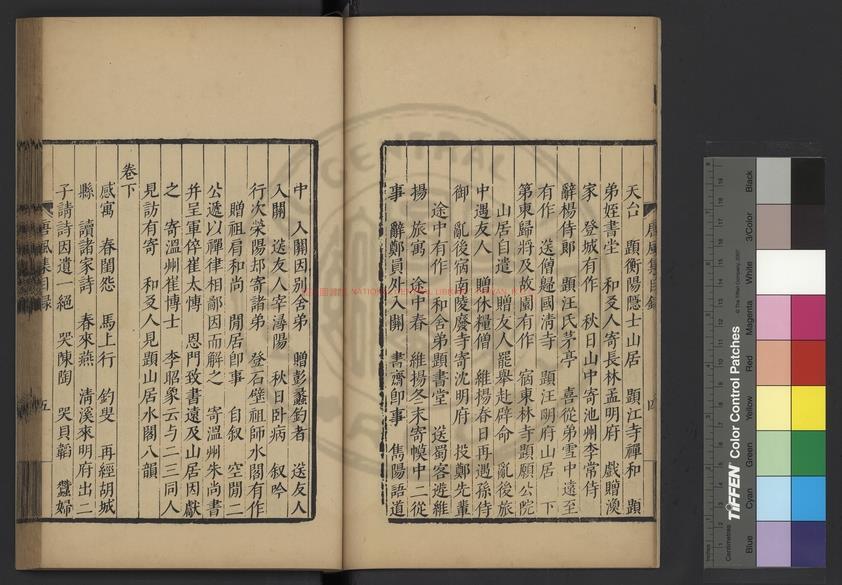 天台　題衡陽隱士山居　題江寺禪和　題
弟姪書堂　和友人寄長林孟明府　戲贈漁
家　登城有作　秋日山中寄池州李常侍
辭楊侍郎　題汪氏茅亭　喜從弟雪中遠至
有作　送僧歸國清寺　題汪明府山居　下
第東歸將及故園有作　宿東林寺題願公院
山居自遣　贈友人罷舉赴辟命　亂後旅
中遇友人　贈休糧僧　維揚春日再遇孫侍
御　亂後宿南陵廢寺寄沈明府　投鄭先輩
途中有作　和舍弟題書堂　送蜀客遊維
揚　旅寓　途中春　維揚冬末寄幙中二從
事　辭鄭員外入關　書齋卽事　雋陽語道
唐風集目錄
四
中　入關因別舍弟　贈彭蠡釣者　送友人
入關　送友人宰潯陽　秋日卧病　叙吟
行次滎陽却寄諸弟　登石壁祖師水閣有作
贈祖肩和尚　閒居卽事　自叙　空閒二
公遞以禪律相鄙因而解之　寄溫州朱尚書
并呈軍倅崔太博　恩門致書遠及山居因獻
之　寄溫州崔博士　李昭象云与二三同人
見訪有寄　和友人見題山居水閣八韻
卷下
感寓　春閨怨　馬上行　釣叟　再經胡城
縣　讀諸家詩　春來燕　清溪來明府出二
子請詩因遺一絕　哭陳陶　哭貝韜　蠶婦
唐風集目錄
五
GENERAL
NATIONAL CENTRAL LIBRARY
TIFFEN Color Control Patches
© The Tiffen Company, 2007
Centimetres
Inches
Blue
Cyan
Green
Yellow
Red
Magenta
White
3/Color
Black